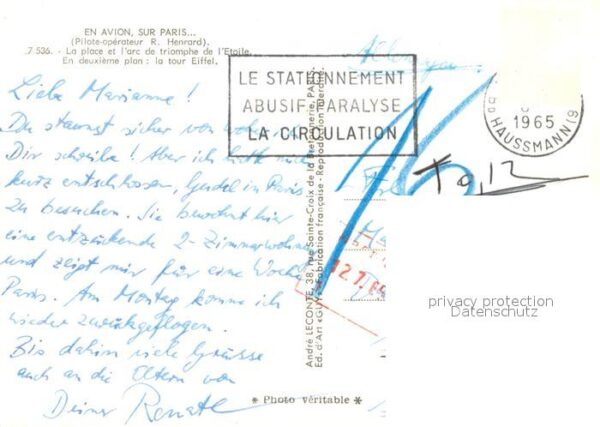 EN AVION, SUR PARIS...
(Pilote-opérateur R. Henrard).
7 536. - La place et l'arc de triomphe de l'Etoile.
En deuxième plan : la tour Eiffel.
Liebe Marianne !
Du staunst sicher von wo ich
Dir schreibe ! Aber ich hatte mich
kurz entschlossen, in Paris
zu besuchen. Sie bewohnt hier
eine entzückende 2-Zimmerwohnung
und zeigt mir für eine Woche
Paris. Am Montag komme ich
wieder zurückgeflogen.
Bis dahin viele Grüsse
auch an die Eltern von
Deiner Renate
LE STATIONNEMENT
ABUSIF PARALYSE
LA CIRCULATION
1965
HAUSSMANN (9
12.7.65
André LECONTE, 38, rue Sainte-Croix de la Bretonnerie, PARIS
Ed. d'Art «GUY» Fabrication française - Reproduction interdite
* Photo véritable *
privacy protection
Datenschutz